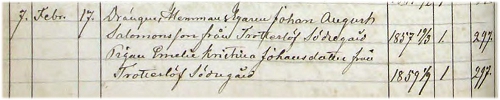 7. Febr. 17. Drängen Hemmans Egaren Johan August
Salomonsson från Trotteslöf Södregård 1857 17/3 1. 297.
Pigan Emelie Kristina Johansdotter från
Trotteslöf Södregård 1859 1. 297.